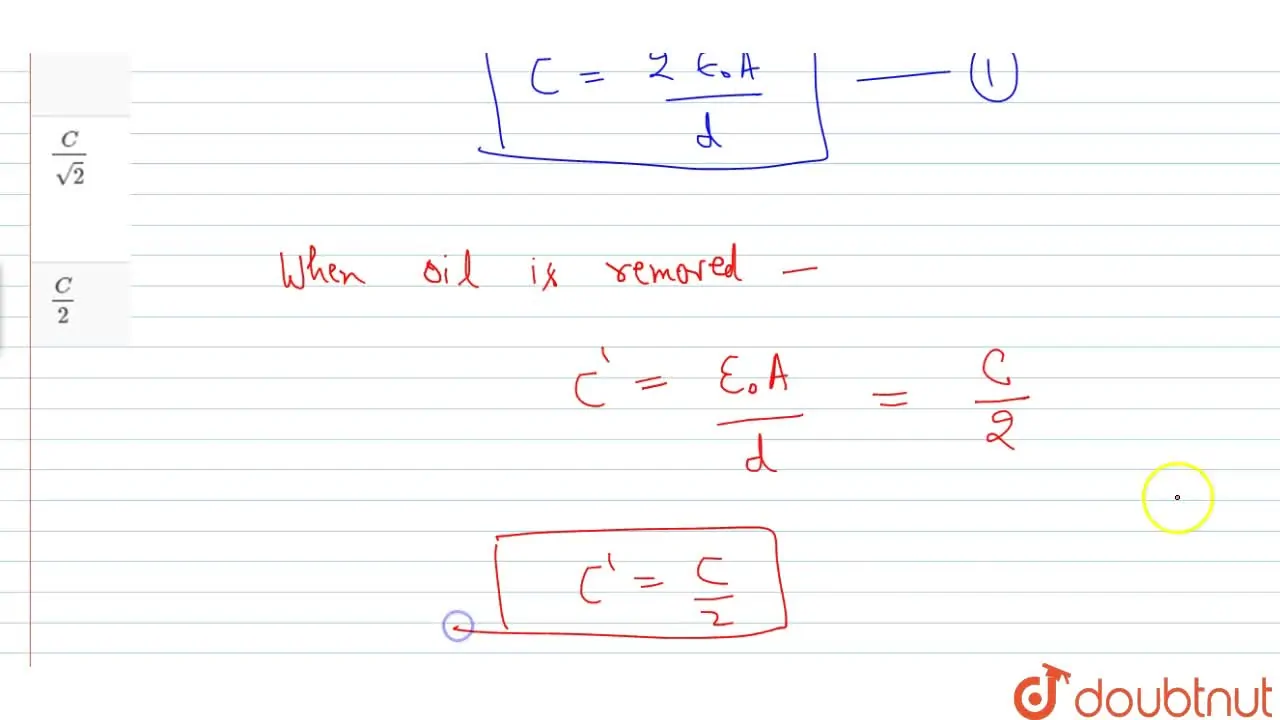 C = 2 ε₀A / d — (1)
C/√2
When oil is removed —
C/2
C' = ε₀A / d = C/2
C' = C/2
doubtnut